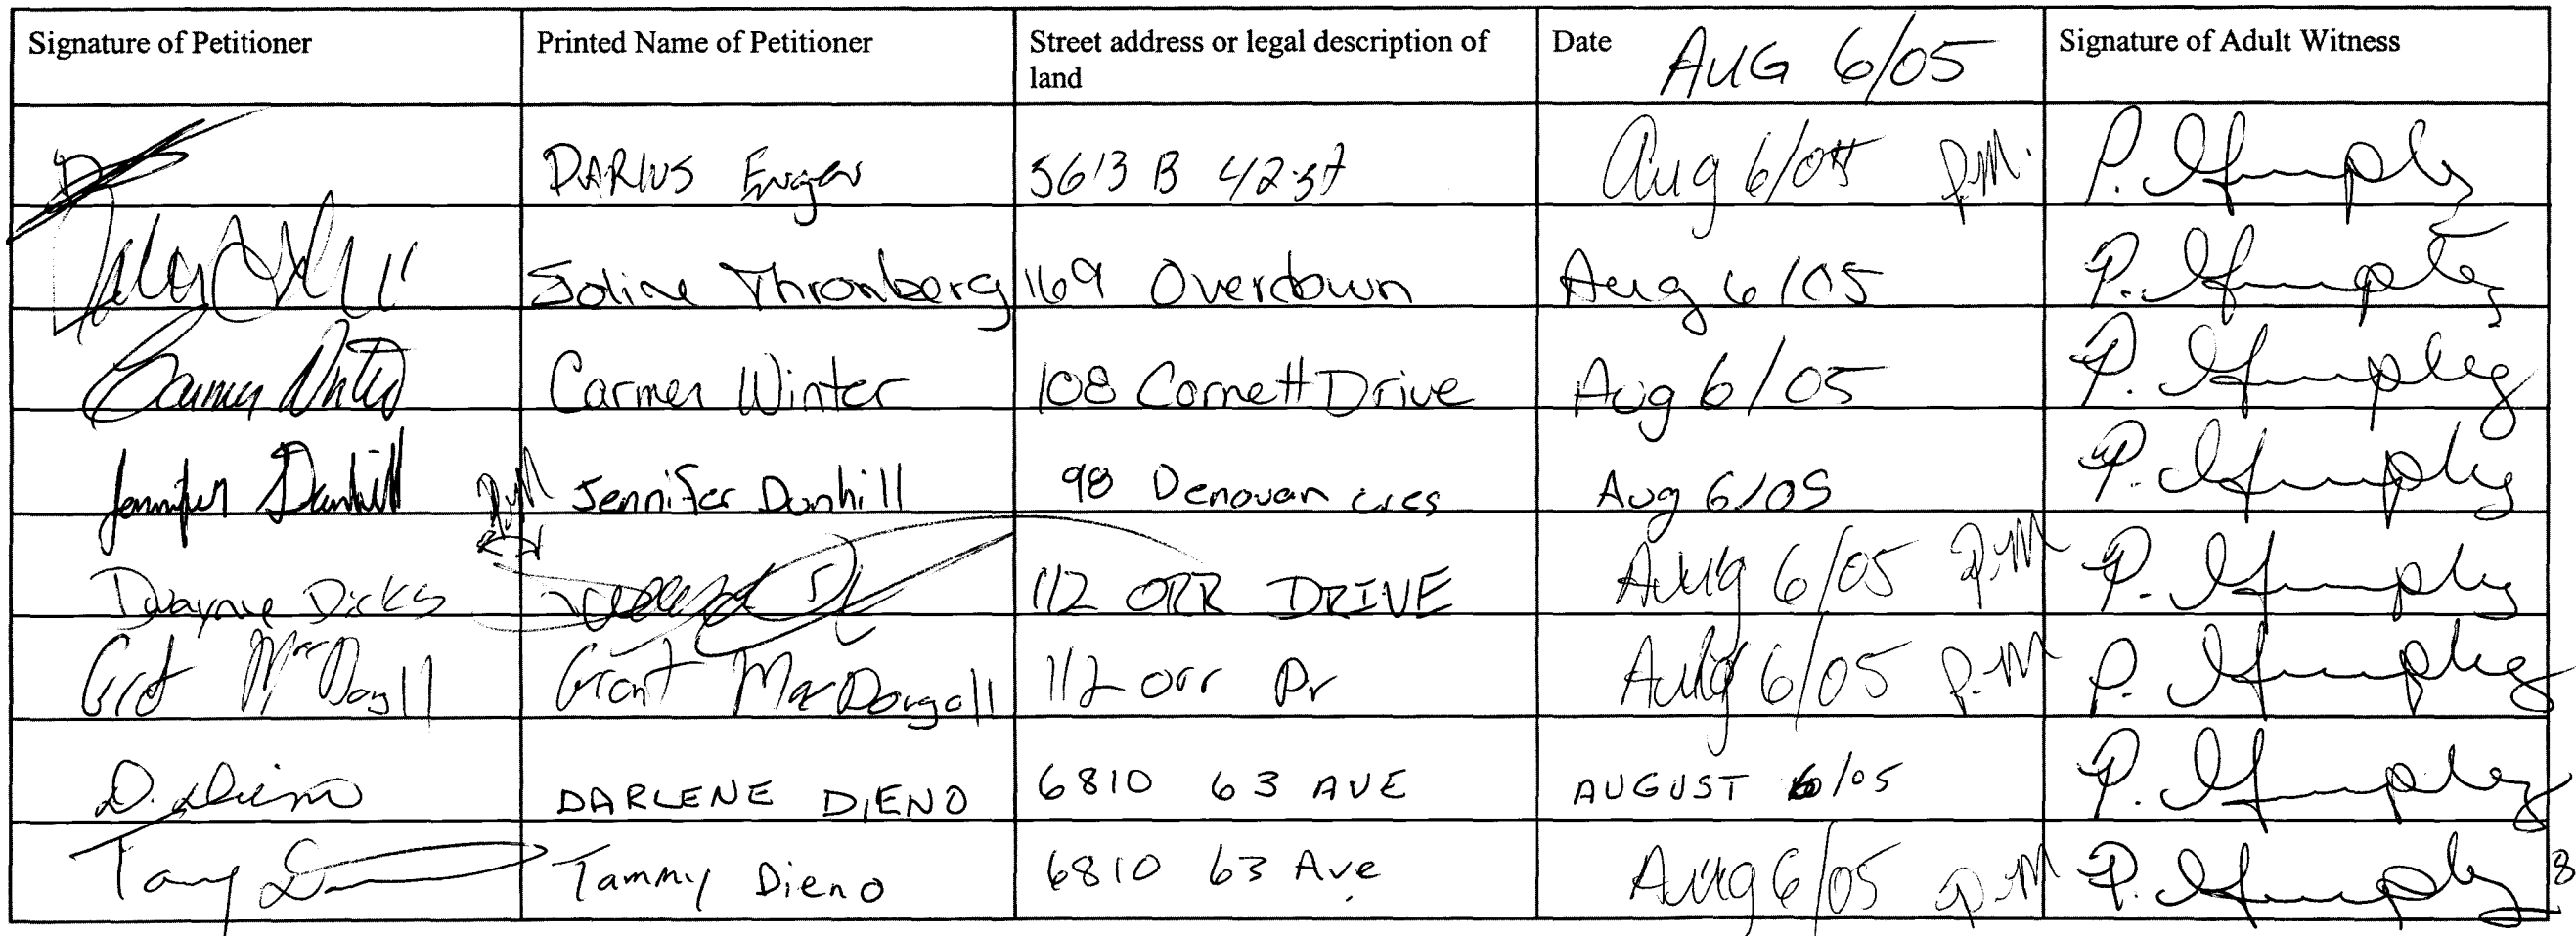 Signature of Petitioner
Printed Name of Petitioner
Street address or legal description of
land
Date AUG 6/05
Signature of Adult Witness
DARIUS 5613 B 42 st Aug 6/05 P.M. P.
Joline Thronberg 169 Overdown Aug 6/05 P.
Carmen Winter Carmen Winter 108 Cornett Drive Aug 6/05 P.
Jennifer Dunhill P.M Jennifer Dunhill 98 Denovan cres Aug 6/05 P.
Dwayne Dicks 112 ORR DRIVE Aug 6/05 P.M P.
Grant MacDougall 112 Orr Dr Aug 6/05 P.M P.
D. Dieno DARLENE DIENO 6810 63 AVE AUGUST 6/05 P.
Tammy Dieno 6810 63 Ave Aug 6/05 P.M P.
8